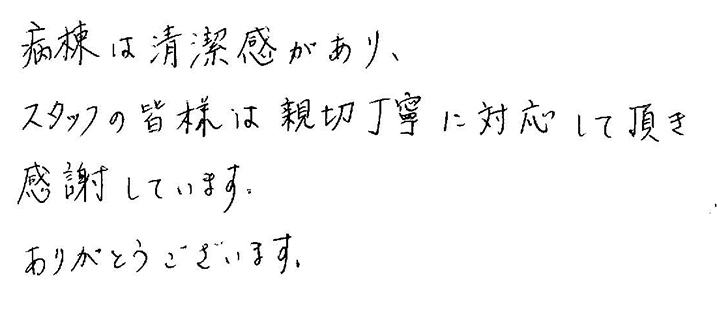 病棟は清潔感があり、
スタッフの皆様は親切丁寧に対応して頂き
感謝しています。
ありがとうございます。